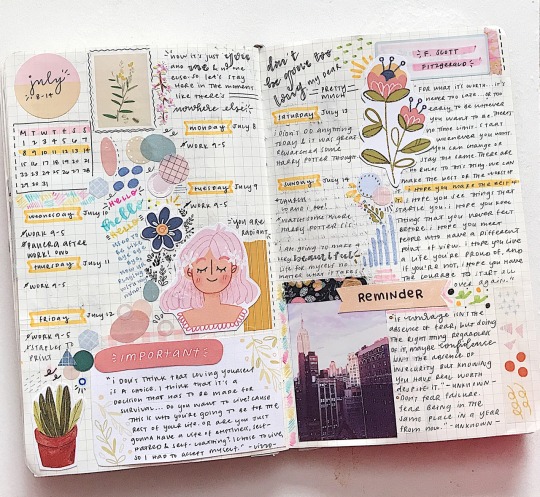 july
8-14
now it's just you
and me & no one
else. so let's stay
here in the moment
like there's
nowhere else.
M T W T F S S
1 2 3 4 5 6 7
8 9 10 11 12 13 14
15 16 17 18 19 20 21
22 23 24 25 26 27 28
29 30 31
monday July 8
WORK 9-5
tuesday July 9
WORK 9-5
wednesday July 10
WORK 9-5
PANERA AFTER
WORK!
thursday July 11
WORK 9-5
friday July 12
WORK 9-5
STARTED TO
PAINT
hello
hello
hello
YOU ARE
RADIANT
IMPORTANT
"I DON'T THINK THAT LOVING YOURSELF
IS A CHOICE. I THINK THAT IT'S A
DECISION THAT HAS TO BE MADE FOR
SURVIVAL... DO YOU WANT TO LIVE? CAUSE
THIS IS WHO YOU'RE GOING TO BE FOR THE
REST OF YOUR LIFE. OR ARE YOU JUST
GONNA HAVE A LIFE OF EMPTINESS, SELF-
HATRED & SELF-LOATHING? I CHOSE TO LIVE,
SO I HAD TO ACCEPT MYSELF." -LIZZO-
don't
be
my dear
PRETTY
MUCH
saturday July 13
DIDN'T DO ANYTHING
TODAY & IT WAS GREAT
REWATCHED SOME
HARRY POTTER THOUGH
sunday July 14
CHURCH
HARRY POTTER
I am going to make a
very beautiful
life for myself no
matter what it takes
F. SCOTT
FITZGERALD
"FOR WHAT IT'S WORTH.. IT'S
NEVER TOO LATE.. OR TOO
EARLY, TO BE WHOEVER
YOU WANT TO BE. THERE'S
NO TIME LIMIT. START
WHENEVER YOU WANT.
YOU CAN CHANGE OR
STAY THE SAME. THERE ARE
NO RULES TO THIS THING. WE CAN
MAKE THE BEST OR THE WORST OF
IT. I HOPE YOU MAKE THE BEST OF
IT. I HOPE YOU SEE THINGS THAT
STARTLE YOU. I HOPE YOU FEEL
THINGS THAT YOU NEVER FELT
BEFORE. I HOPE YOU MEET
PEOPLE WHO HAVE A DIFFERENT
POINT OF VIEW. I HOPE YOU LIVE
A LIFE YOU'RE PROUD OF, AND
IF YOU'RE NOT, I HOPE YOU HAVE
THE COURAGE TO START ALL
OVER AGAIN."
REMINDER
"IF courage ISN'T THE
ABSENCE OF FEAR, BUT DOING
THE RIGHT THING REGARDLESS
OF IT, MAYBE confidence
ISN'T THE ABSENCE OF
INSECURITY BUT KNOWING
YOU HAVE REAL WORTH
DESPITE IT." -UNKNOWN-
"DON'T FEAR FAILURE.
FEAR BEING IN THE
SAME PLACE IN A YEAR
FROM NOW." -UNKNOWN-